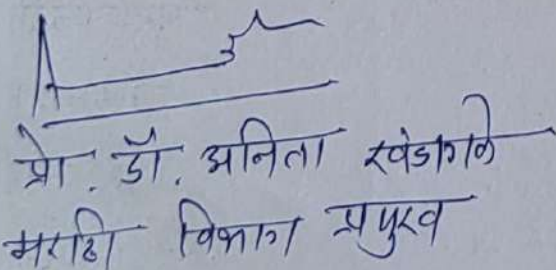 प्रो. डॉ. अनिता खंडागळे
मराठी विभाग प्रमुख